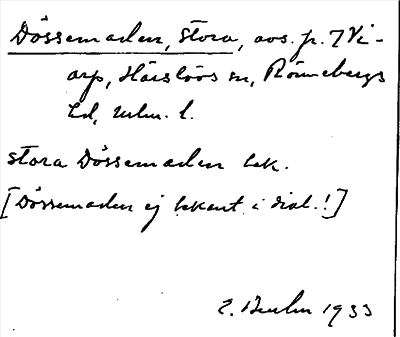 Dössemaden, Stora, avs. p. 7 Vi-
arp, Härslövs sn, Rönnebergs
hd, Mlm. l.
stora Dössemaden bek.
[Dössemaden ej bekant i dial.!]
1933